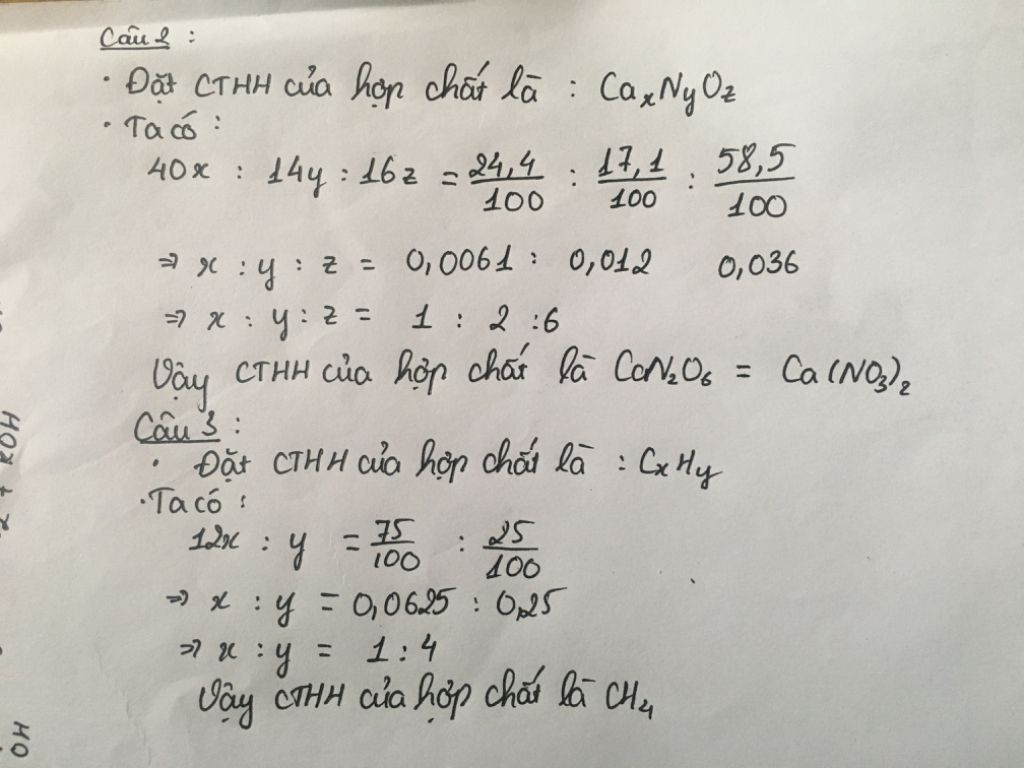 Câu 2 :
• Đặt CTHH của hợp chất là : CaxNyOz
• Ta có :
40x : 14y : 16z = 24,4/100 : 17,1/100 : 58,5/100
⇒ x : y : z = 0,0061 : 0,012 0,036
⇒ x : y : z = 1 : 2 : 6
Vậy CTHH của hợp chất là CaN₂O₆ = Ca(NO₃)₂
Câu 3 :
• Đặt CTHH của hợp chất là : CxHy
• Ta có :
12x : y = 75/100 : 25/100
⇒ x : y = 0,0625 : 0,25
⇒ x : y = 1 : 4
Vậy CTHH của hợp chất là CH₄